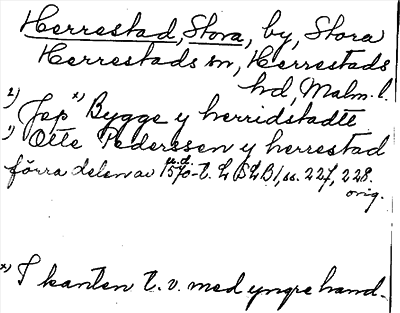 Herrestad, Stora, by, Stora
Herrestads sn, Herrestads
hd, Malm. l.
2) Jep x) Bygge y herridstadte
1) Otte Pederssen y herrestad
förra delen av 1570-t. L SLB1, ss. 227, 228.
orig.
x) I kanten t. v. med yngre hand.